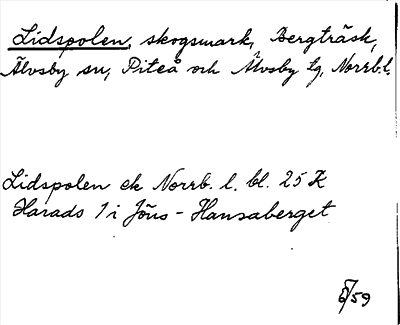 Lidspolen, skogsmark, Bergträsk,
Älvsby sn, Piteå och Älvsby tg, Norrb.l.
Lidspolen ek Norrb. l. bl. 25 K
Harads 1 i Jöns - Hansaberget
/59